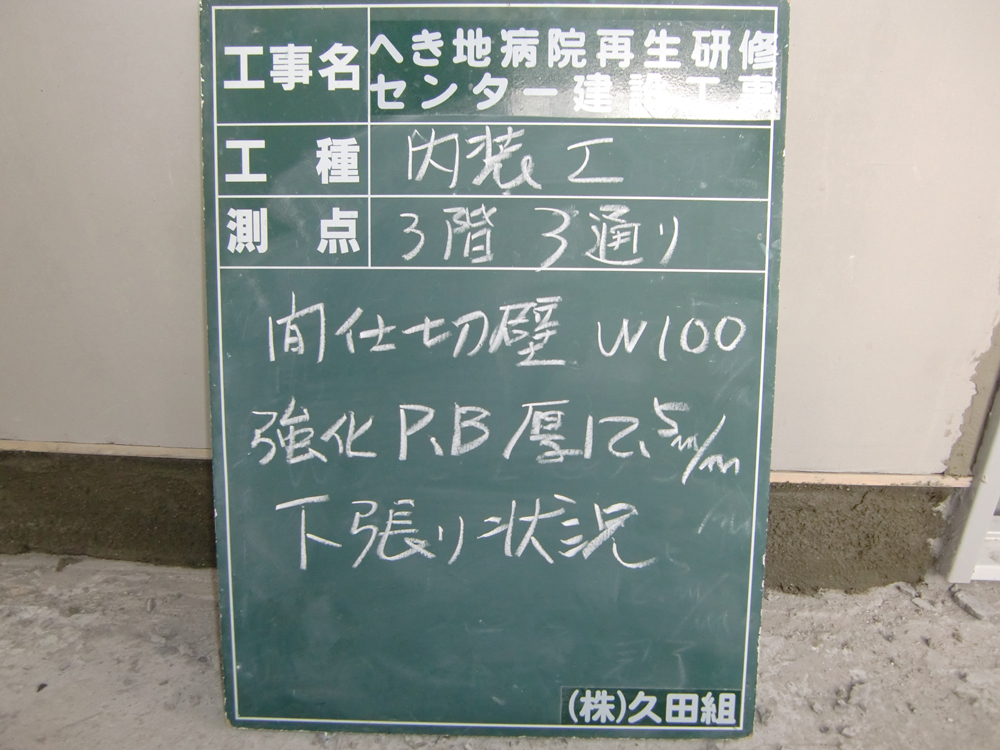 工事名 へき地病院再生研修
センター建設工事
工種 内装工
測点 3階 3通り
間仕切壁 W100
強化P.B厚12.5m/m
下張り状況
(株)久田組